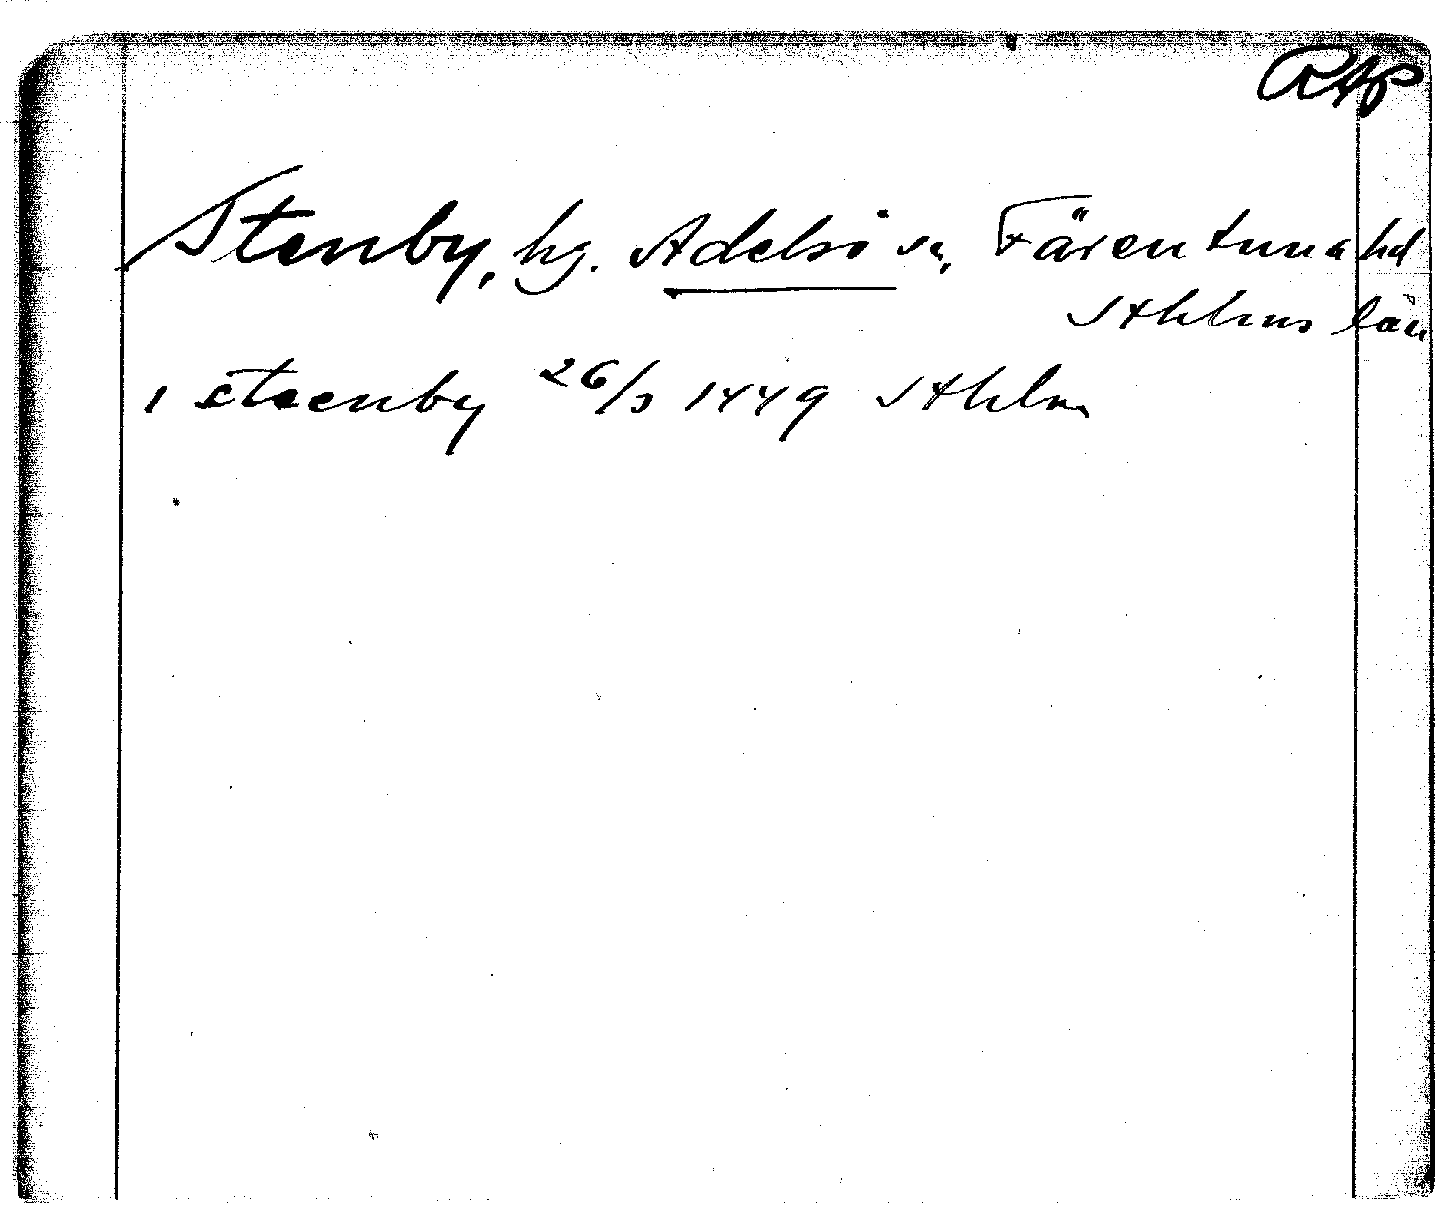 RAP
Stenby, hg. Adelsö sn, Färentuna hd
Sthlms län
i steenby 26/3 1449 Sthlm